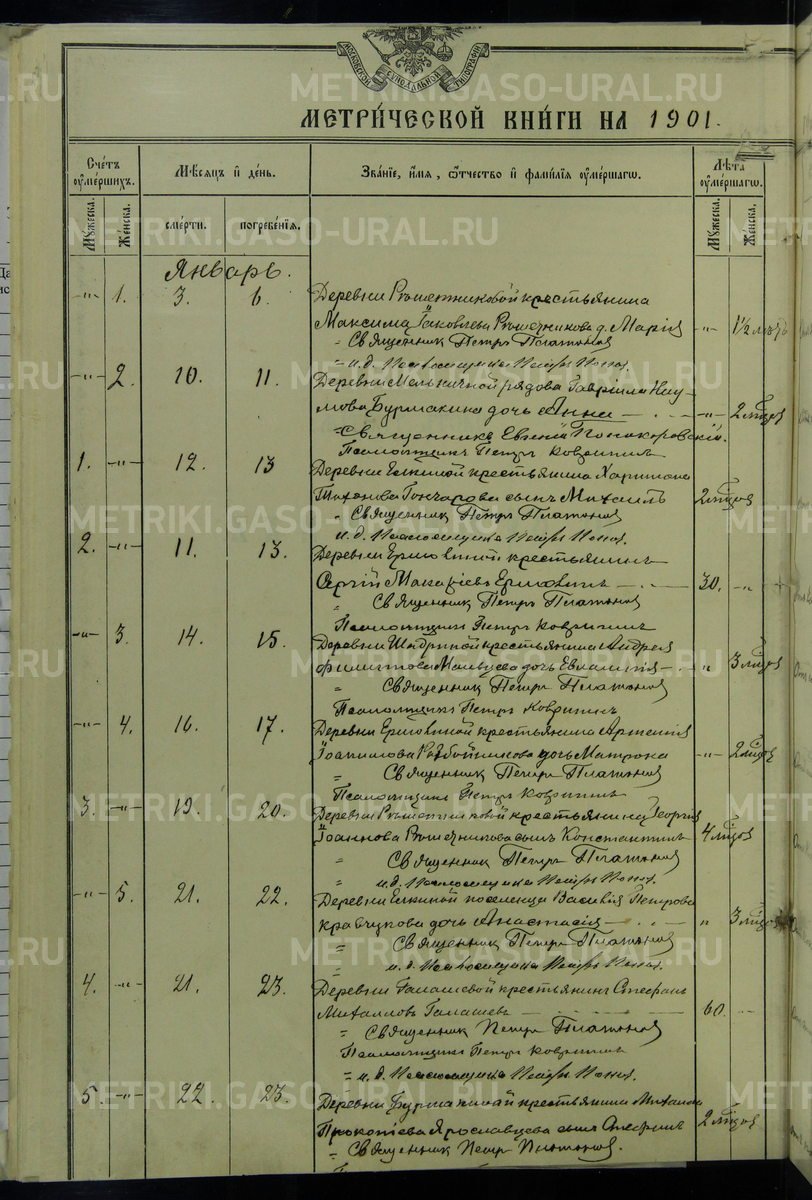 МЕТРИ́ЧЕСКОЙ КНИ́ГИ НА 1901.
Сче́тъ ᲂумершихъ.
Мѣ́сяцъ и де́нь.
Зва́нїе, и́мя, ѻ́тчество и фами́лїя ᲂуме́ршагѡ.
Лѣта ᲂуме́ршагѡ.
Мꙋ́жеска. Же́нска. сме́рти. погребе́нїя. Мꙋ́жеска. Же́нска.
Январь.
-"- 1. 3. 6. Деревни Рѣшетниковой крестьянина
Максима Iаковлева Рѣшетникова д. Марiя -"- 1½ лѣтъ
= Священникъ Петръ Платоновъ
= и.д. Псаломщика Петръ
-"- 2. 10. 11. Деревни Мельничной рядова Гаврiила Нау-
мова Бурмакина дочь Анна -"- 2 мѣсяцовъ
= Священникъ Евгенiй Попокоровскiй.
Псаломщикъ Петръ Ковригинъ
1. -"- 12. 13 Деревни Елкиной крестьянина Харитона
Тихонова Гончарова сынъ Михаилъ 2 мѣсяцовъ
" Священникъ Петръ Платоновъ
и.д. Псаломщика Петръ
2. -"- 11. 13. Деревни крестьянинъ
Сергiй Макарiевъ 30. -"-
" Священникъ Петръ Платоновъ
Псаломщикъ Петръ Ковригинъ
-"- 3. 14. 15. Деревни Шадриной крестьянина Андрея
Филиппова Мальцева дочь Евлампiя " 3 мѣсяцовъ
= Священникъ Петръ Платоновъ
Псаломщикъ Петръ Ковригинъ
-"- 4. 16. 17. Деревни крестьянина Артемiя
Iоакимова Разбойникова дочь Матрона -"- 2 мѣсяцовъ
= Священникъ Петръ Платоновъ
Псаломщикъ Петръ Ковригинъ
3. -"- 19. 20. Деревни Рѣшетниковой крестьянина Георгiя
Iоаннова Рѣшетникова сынъ Константинъ 4 мѣсяцовъ
= Священникъ Петръ Платоновъ
= и.д. Псаломщика Петръ
-"- 5. 21. 22. Деревни Елкиной поселенца Василiя Петрова
Кравчукова дочь Анастасiя " 3 мѣсяцовъ
= Священникъ Петръ Платоновъ
= и.д. Псаломщика Петръ
4. -"- 21. 23. Деревни Галашевой крестьянинъ Стефанъ
Михаиловъ Галашевъ 60. -"-
= Священникъ Петръ Платоновъ
Псаломщикъ Петръ Ковригинъ
= и.д. Псаломщика Петръ
5. -"- 22. 23. Деревни Бурмакиной крестьянина Михаила
Прокопiева Ярославцева сынъ Стефанъ 2 мѣсяцовъ
= Священникъ Петръ Платоновъ
METRIKI.GASO-URAL.RU